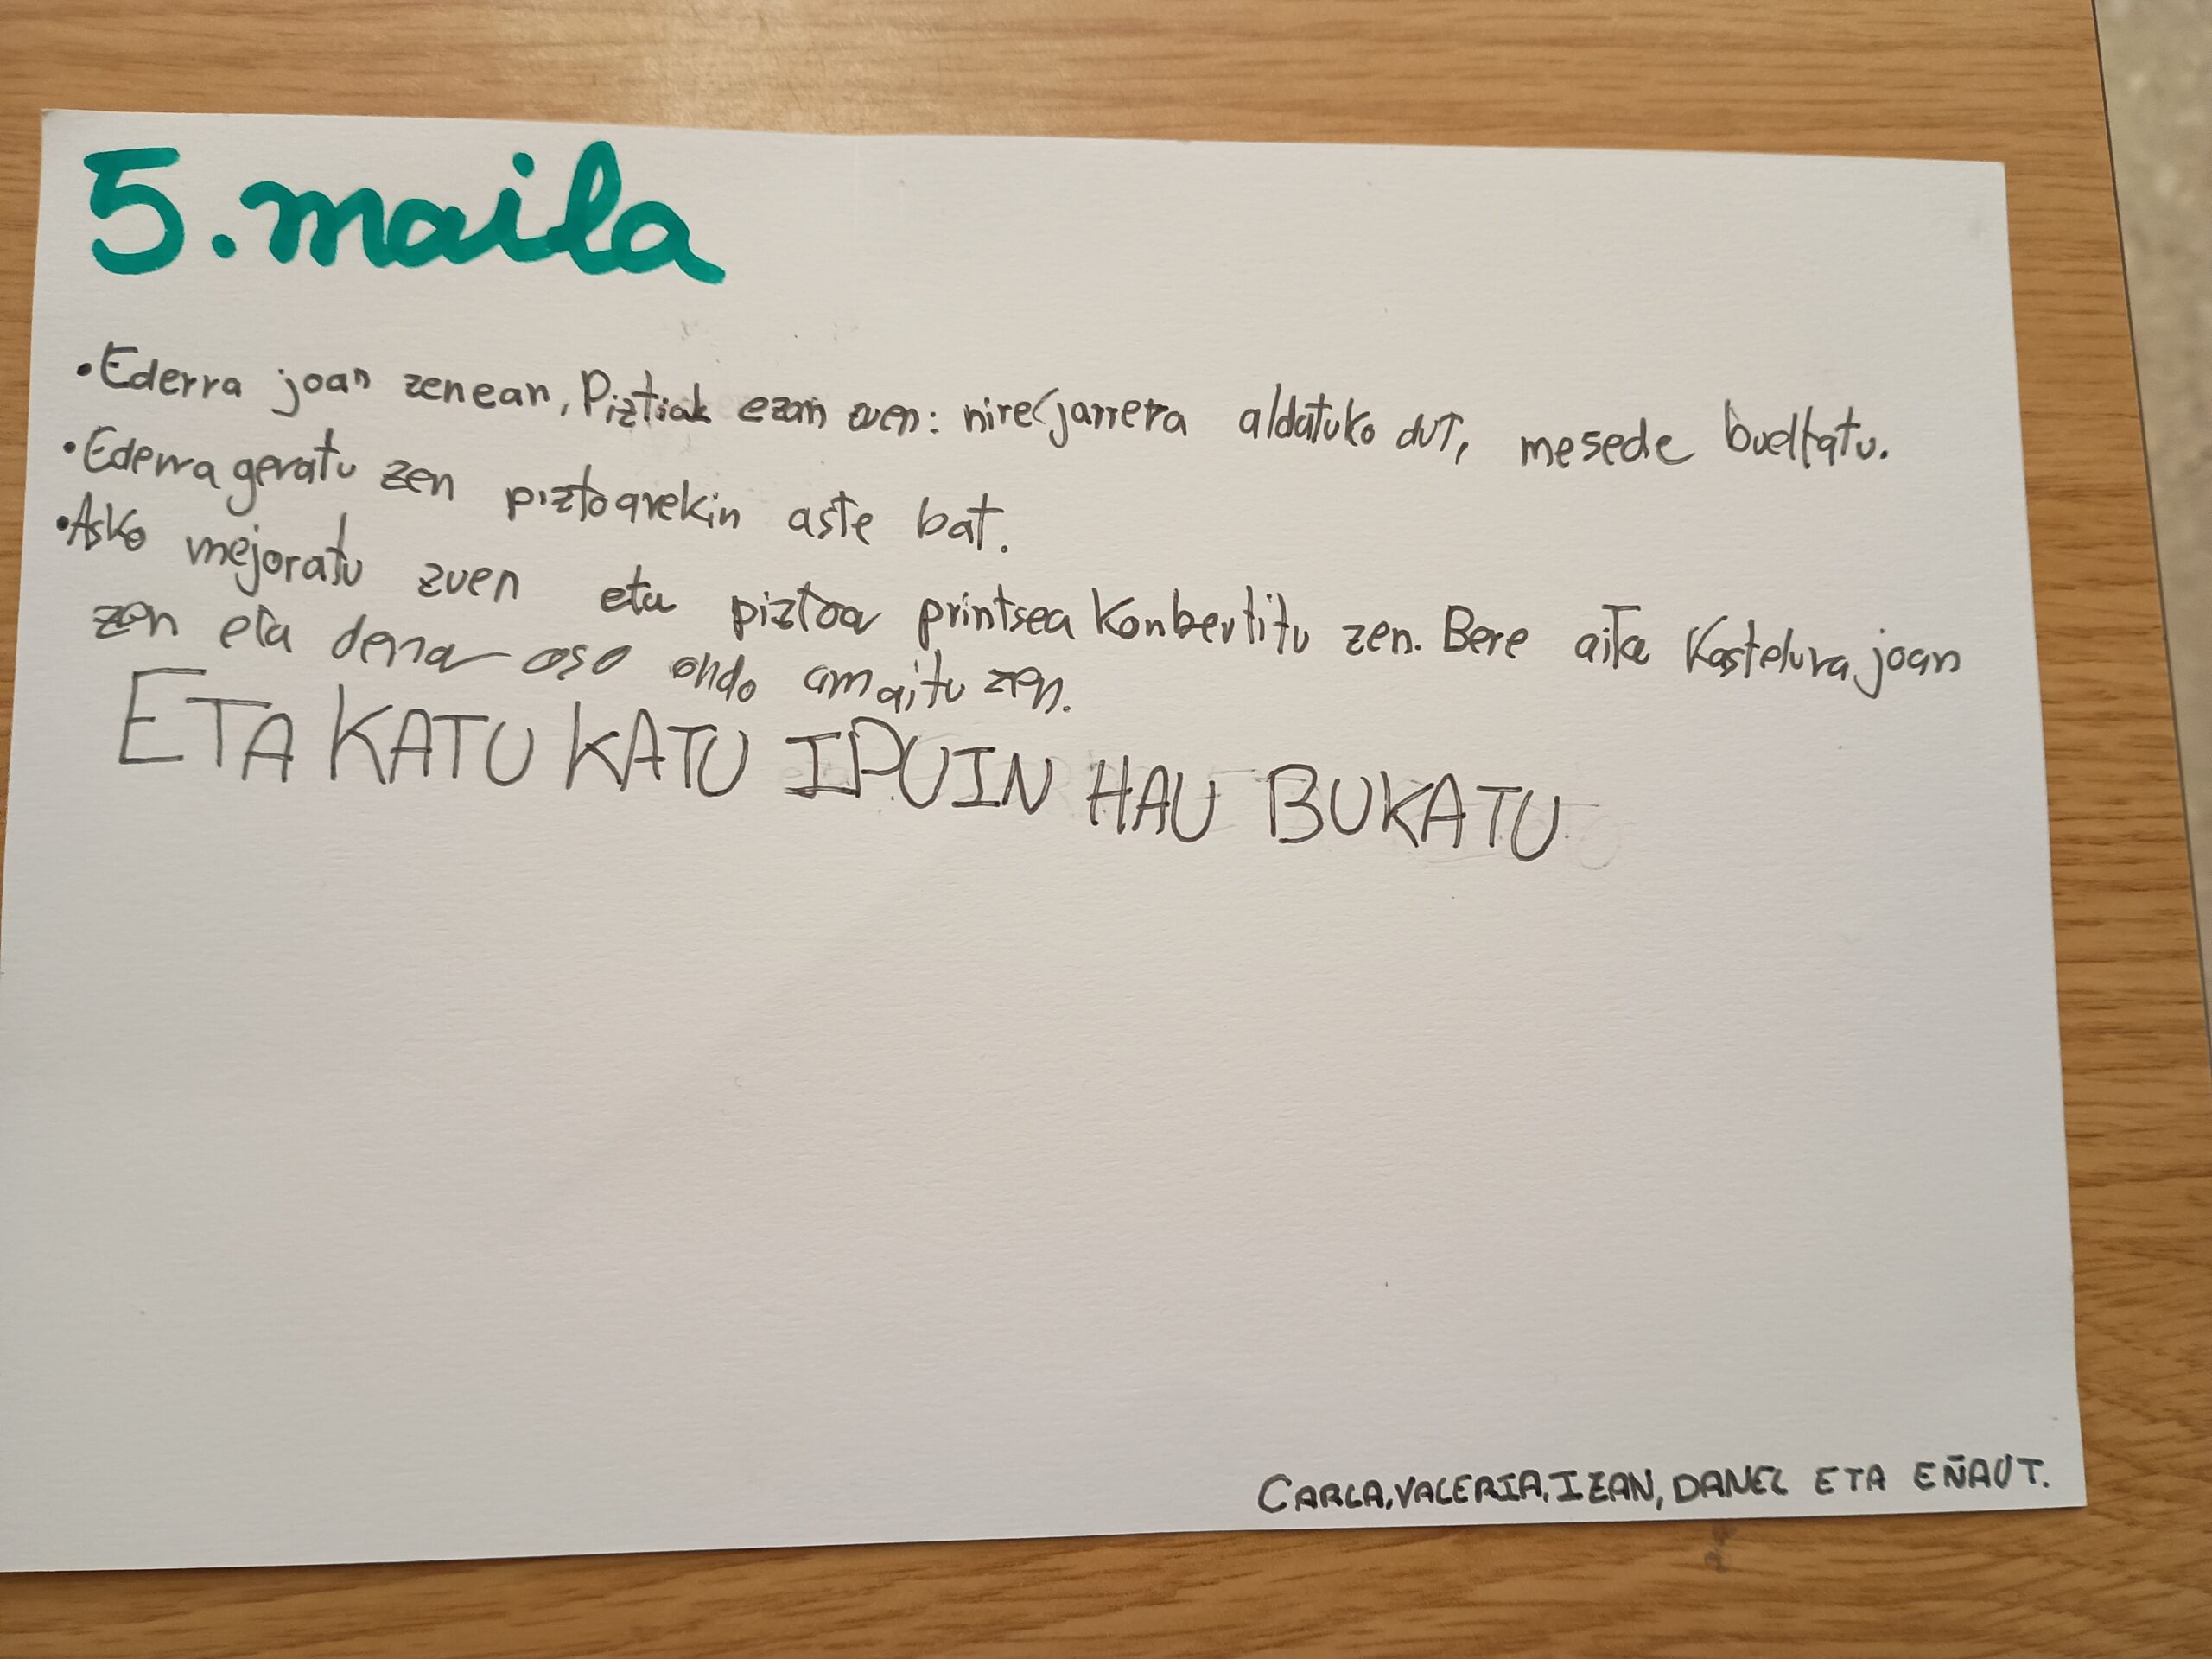 5. maila
•Ederra joan zenean, Piztiak ezan zuen: nire jarrera aldatuko dut, mesede bueltatu.
•Ederra geratu zen piztoarekin aste bat.
•Asko mejoratu zuen eta piztoa printsea konbertitu zen. Bere aita Kastelura joan
zen eta dena oso ondo amaitu zen.
ETA KATU KATU IPUIN HAU BUKATU
CARLA, VALERIA, IZAN, DANEL ETA EÑAUT.